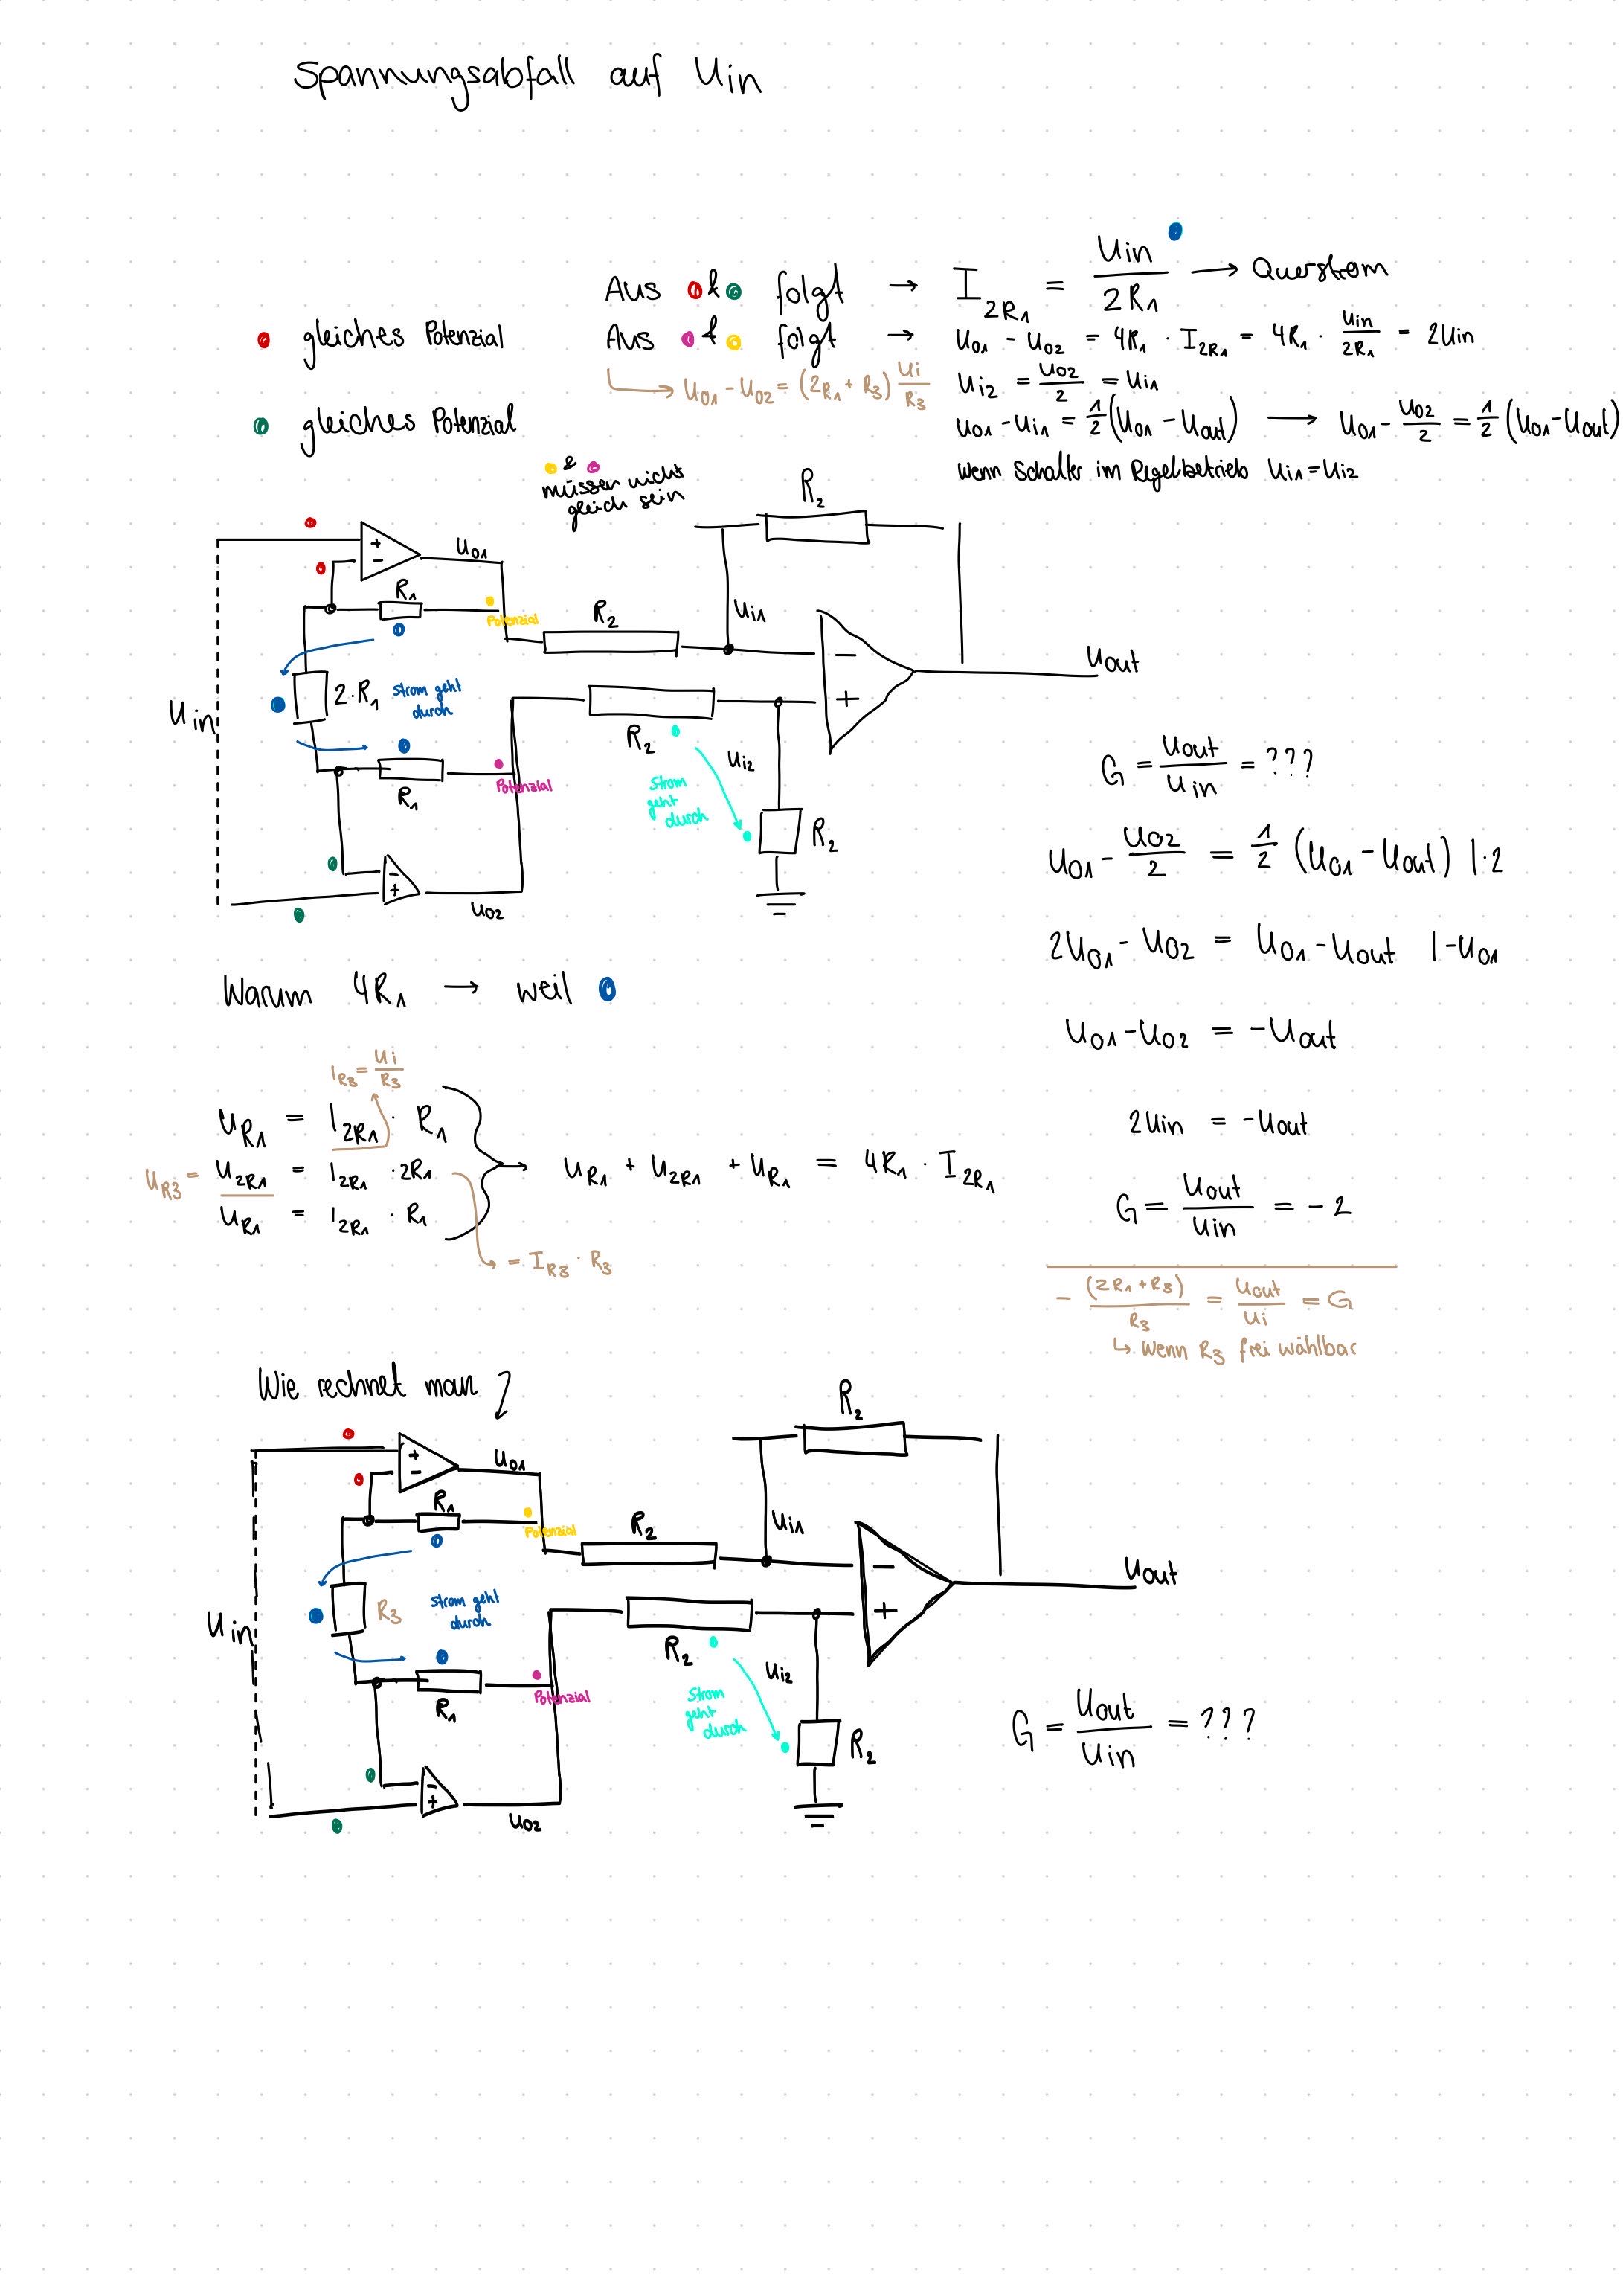 Spannungsabfall auf Uin
Aus & folgt → I2R1 = Uin / 2R1 → Querstrom
gleiches Potenzial
Aus & folgt → U01 - U02 = 4R1 · I2R1 = 4R1 · Uin / 2R1 = 2Uin
U01 - U02 = (2R1 + R3) Ui / R3
Ui2 = U02 / 2 = Ui1
gleiches Potenzial
U01 - Ui1 = 1/2 (U01 - Uout) → U01 - U02 / 2 = 1/2 (U01 - Uout)
Wenn Schalter im Regelbetrieb Ui1 = Ui2
&
müssen nicht
gleich sein
R2
+
-
U01
R1
Potenzial
R2
Ui1
-
+
Uout
Uin
2·R1
Strom geht
durch
R2
Ui2
R1
Potenzial
Strom
geht
durch
R2
-
+
U02
G = Uout / Uin = ???
U01 - U02 / 2 = 1/2 (U01 - Uout) | · 2
2U01 - U02 = U01 - Uout | - U01
U01 - U02 = - Uout
2Uin = - Uout
G = Uout / Uin = - 2
- (2R1 + R3) / R3 = Uout / Ui = G
↳ wenn R3 frei wählbar
Warum 4R1 → weil
IR3 = Ui / R3
UR1 = I2R1 · R1
UR3 = U2R1 = I2R1 · 2R1
UR1 = I2R1 · R1
→ UR1 + U2R1 + UR1 = 4R1 · I2R1
= IR3 · R3
Wie rechnet man
R2
+
-
U01
R1
Potenzial
R2
Ui1
-
+
Uout
Uin
R3
Strom geht
durch
R2
Ui2
R1
Potenzial
Strom
geht
durch
R2
-
+
U02
G = Uout / Uin = ???